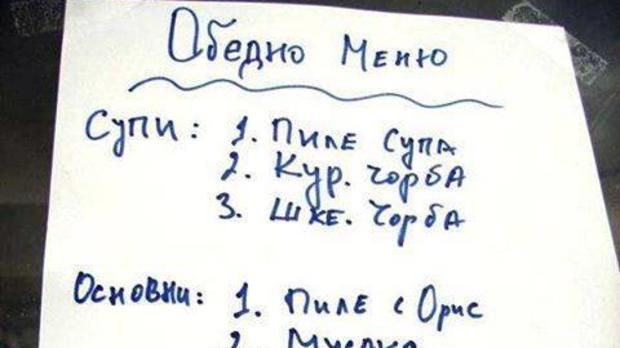 Обедно Меню
Супи: 1. Пиле Супа
2. Кур. Чорба
3. Шке. Чорба
Основни: 1. Пиле с Орис
2.